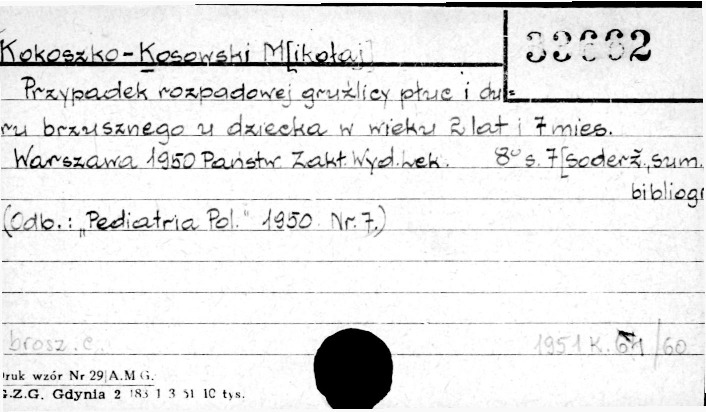 Kokoszko-Kosowski M[ikołaj]
33662
Przypadek rozpadowej gruźlicy płuc i du=
ru brzusznego u dziecka w wieku 2 lat i 7 mies.
Warszawa 1950 Państw. Zakł. Wyd. Lek. 8° s. 7 [soderž., sum.
bibliogr
(Odb.: „Pediatria Pol." 1950. Nr. 7.)
brosz. c.
1951 K. /60
ruk wzór Nr 29 A.M G.
G.Z.G. Gdynia 2 183 1 3 51 10 tys.